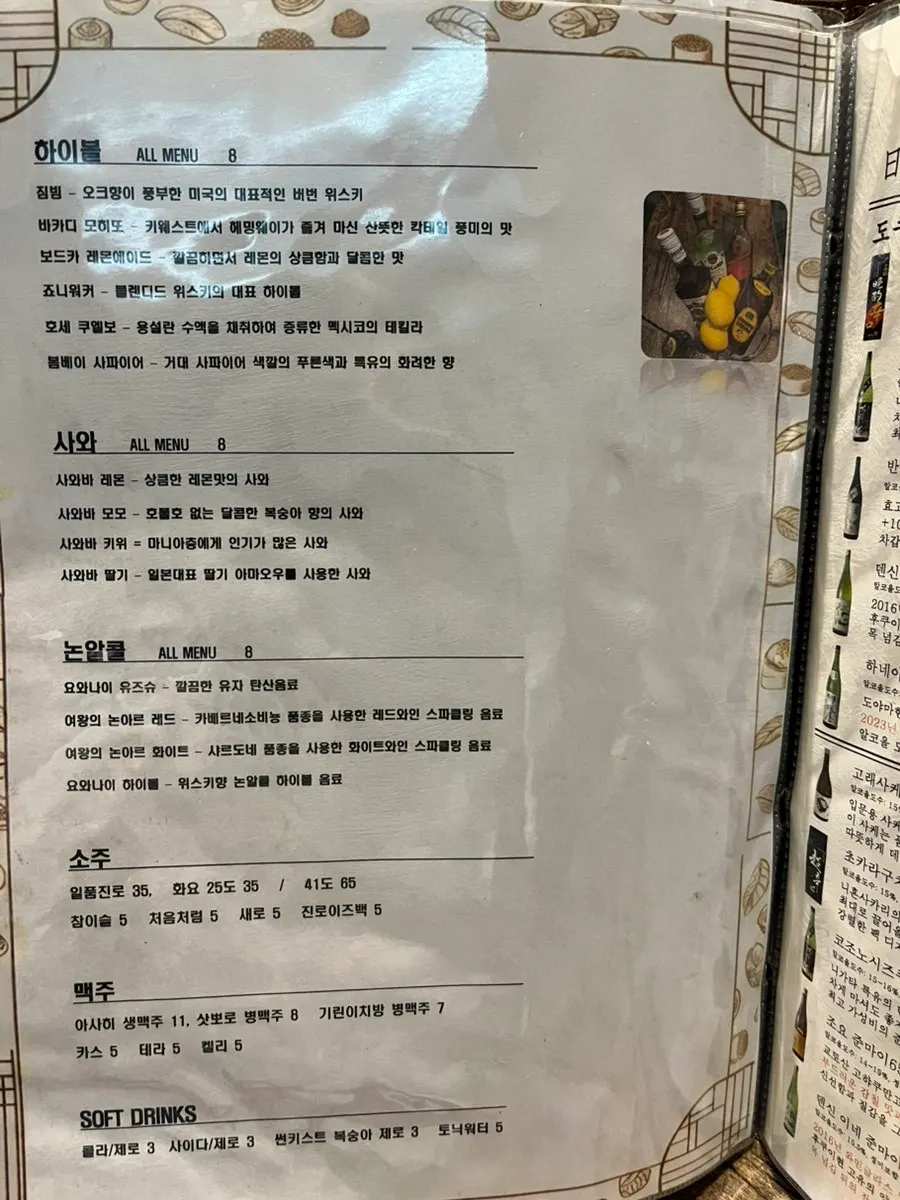 하이볼 ALL MENU 8
짐빔 – 오크향이 풍부한 미국의 대표적인 버번 위스키
바카디 모히또 – 키웨스트에서 헤밍웨이가 즐겨 마신 산뜻한 칵테일 풍미의 맛
보드카 레몬에이드 – 깔끔하면서 레몬의 상큼함과 달콤한 맛
죠니워커 – 블렌디드 위스키의 대표 하이볼
호세 쿠엘보 – 용설란 수액을 채취하여 증류한 멕시코의 테킬라
봄베이 사파이어 – 거대 사파이어 색깔의 푸른색과 특유의 화려한 향
사와 ALL MENU 8
사와바 레몬 – 상큼한 레몬맛의 사와
사와바 모모 – 호불호 없는 달콤한 복숭아 향의 사와
사와바 키위 = 마니아층에게 인기가 많은 사와
사와바 딸기 – 일본대표 딸기 아마오우를 사용한 사와
논알콜 ALL MENU 8
요와나이 유즈슈 – 깔끔한 유자 탄산음료
여왕의 논아르 레드 – 카베르네소비뇽 품종을 사용한 레드와인 스파클링 음료
여왕의 논아르 화이트 – 샤르도네 품종을 사용한 화이트와인 스파클링 음료
요와나이 하이볼 – 위스키향 논알콜 하이볼 음료
소주
일품진로 35, 화요 25도 35 / 41도 65
참이슬 5 처음처럼 5 새로 5 진로이즈백 5
맥주
아사히 생맥주 11, 삿뽀로 병맥주 8 기린이치방 병맥주 7
카스 5 테라 5 켈리 5
SOFT DRINKS
콜라/제로 3 사이다/제로 3 썬키스트 복숭아 제로 3 토닉워터 5
日
도
반
효고
+10
차갑
덴신
2016
후쿠이
목 넘김
하네
도야마현
2023년
알코올 도
고래사케
입문용 사케
이 사케는
따뜻하게 데
초카라구치
알코올도수: 15%,
니혼사카리의
최대로 끌어올
강렬한 팩 디자
코조노시즈
알코올도수: 15~16%,
니가타 특유의
차게 마셔도 좋
최고 가성비의 준
조요 준마이6
알코올도수: 14~15%,
교토산 고햐쿠만고
부드러운 감칠맛
신선함과 질감을 그
덴신 이네 준마이
2016년 와인글라스
후쿠이현 고유의